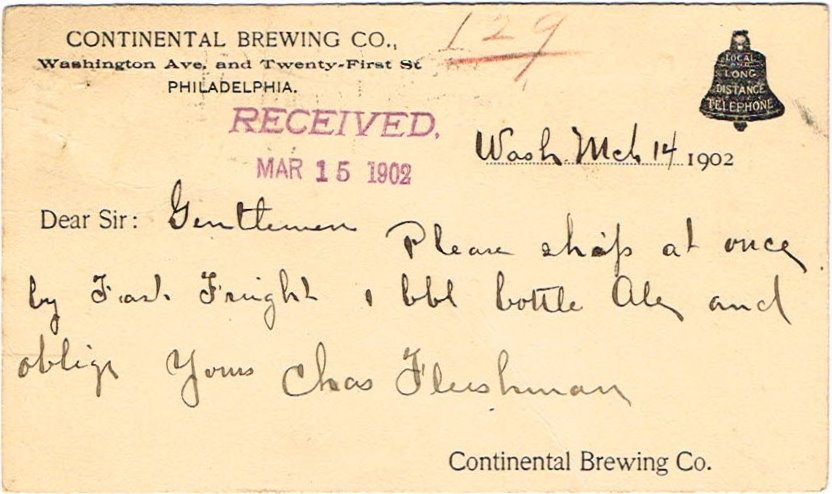 CONTINENTAL BREWING CO.,
Washington Ave. and Twenty-First St
PHILADELPHIA.
129
LOCAL
AND
LONG
DISTANCE
TELEPHONE
RECEIVED.
MAR 15 1902
Wash Mch 14 1902
Dear Sir: Gentlemen Please ship at once
by Fast Freight 1 bbl bottle Ale and
oblige Yours Chas Fleishman
Continental Brewing Co.